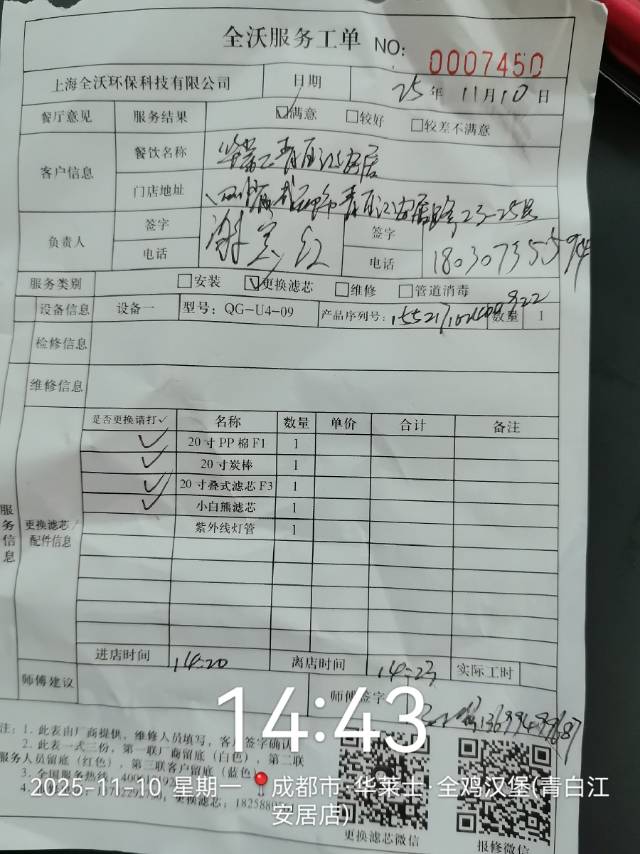 全沃服务工单 NO: 0007450
上海全沃环保科技有限公司 日期 25年11月10日
餐厅意见 服务结果 ☑满意 □较好 □较差不满意
客户信息 餐饮名称 华莱士青白江安居
门店地址 青白江安居路23-25号
负责人 签字 签字
电话 电话 18030735594
服务类别 □安装 ☑更换滤芯 □维修 □管道消毒
设备信息 设备一 型号: QG-U4-09 产品序列号: 数量 1
检修信息
维修信息
服务信息 更换滤芯/配件信息
是否更换请打✓ 名称 数量 单价 合计 备注
✓ 20寸PP棉F1 1
✓ 20寸炭棒 1
✓ 20寸叠式滤芯F3 1
✓ 小白熊滤芯 1
紫外线灯管 1
进店时间 14:20 离店时间 14:23 实际工时
师傅建议 师傅签字
14:43
注: 1. 此表由厂商提供, 维修人员填写, 客户签字确认
2. 此表一式三份, 第一联厂商留底(白色), 第二联
服务人员留底(红色), 第三联客户留底(蓝色)
3. 全国服务热线:
更换滤芯:
2025-11-10 星期一 成都市·华莱士·全鸡汉堡(青白江
安居店)
更换滤芯微信 报修微信